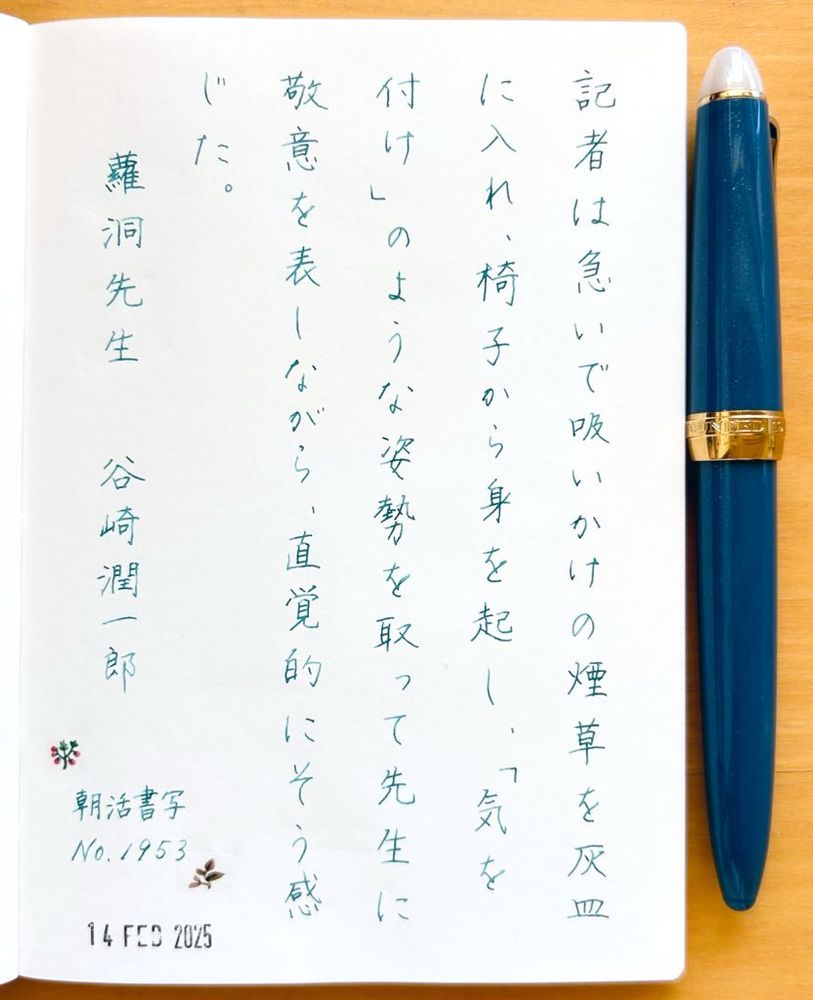 記者は急いで吸いかけの煙草を灰皿
に入れ、椅子から身を起し、「気を
付け」のような姿勢を取って先生に
敬意を表しながら、直覚的にそう感
じた。
蘿洞先生 谷崎潤一郎
朝活書写
No.1953
14 FEB 2025